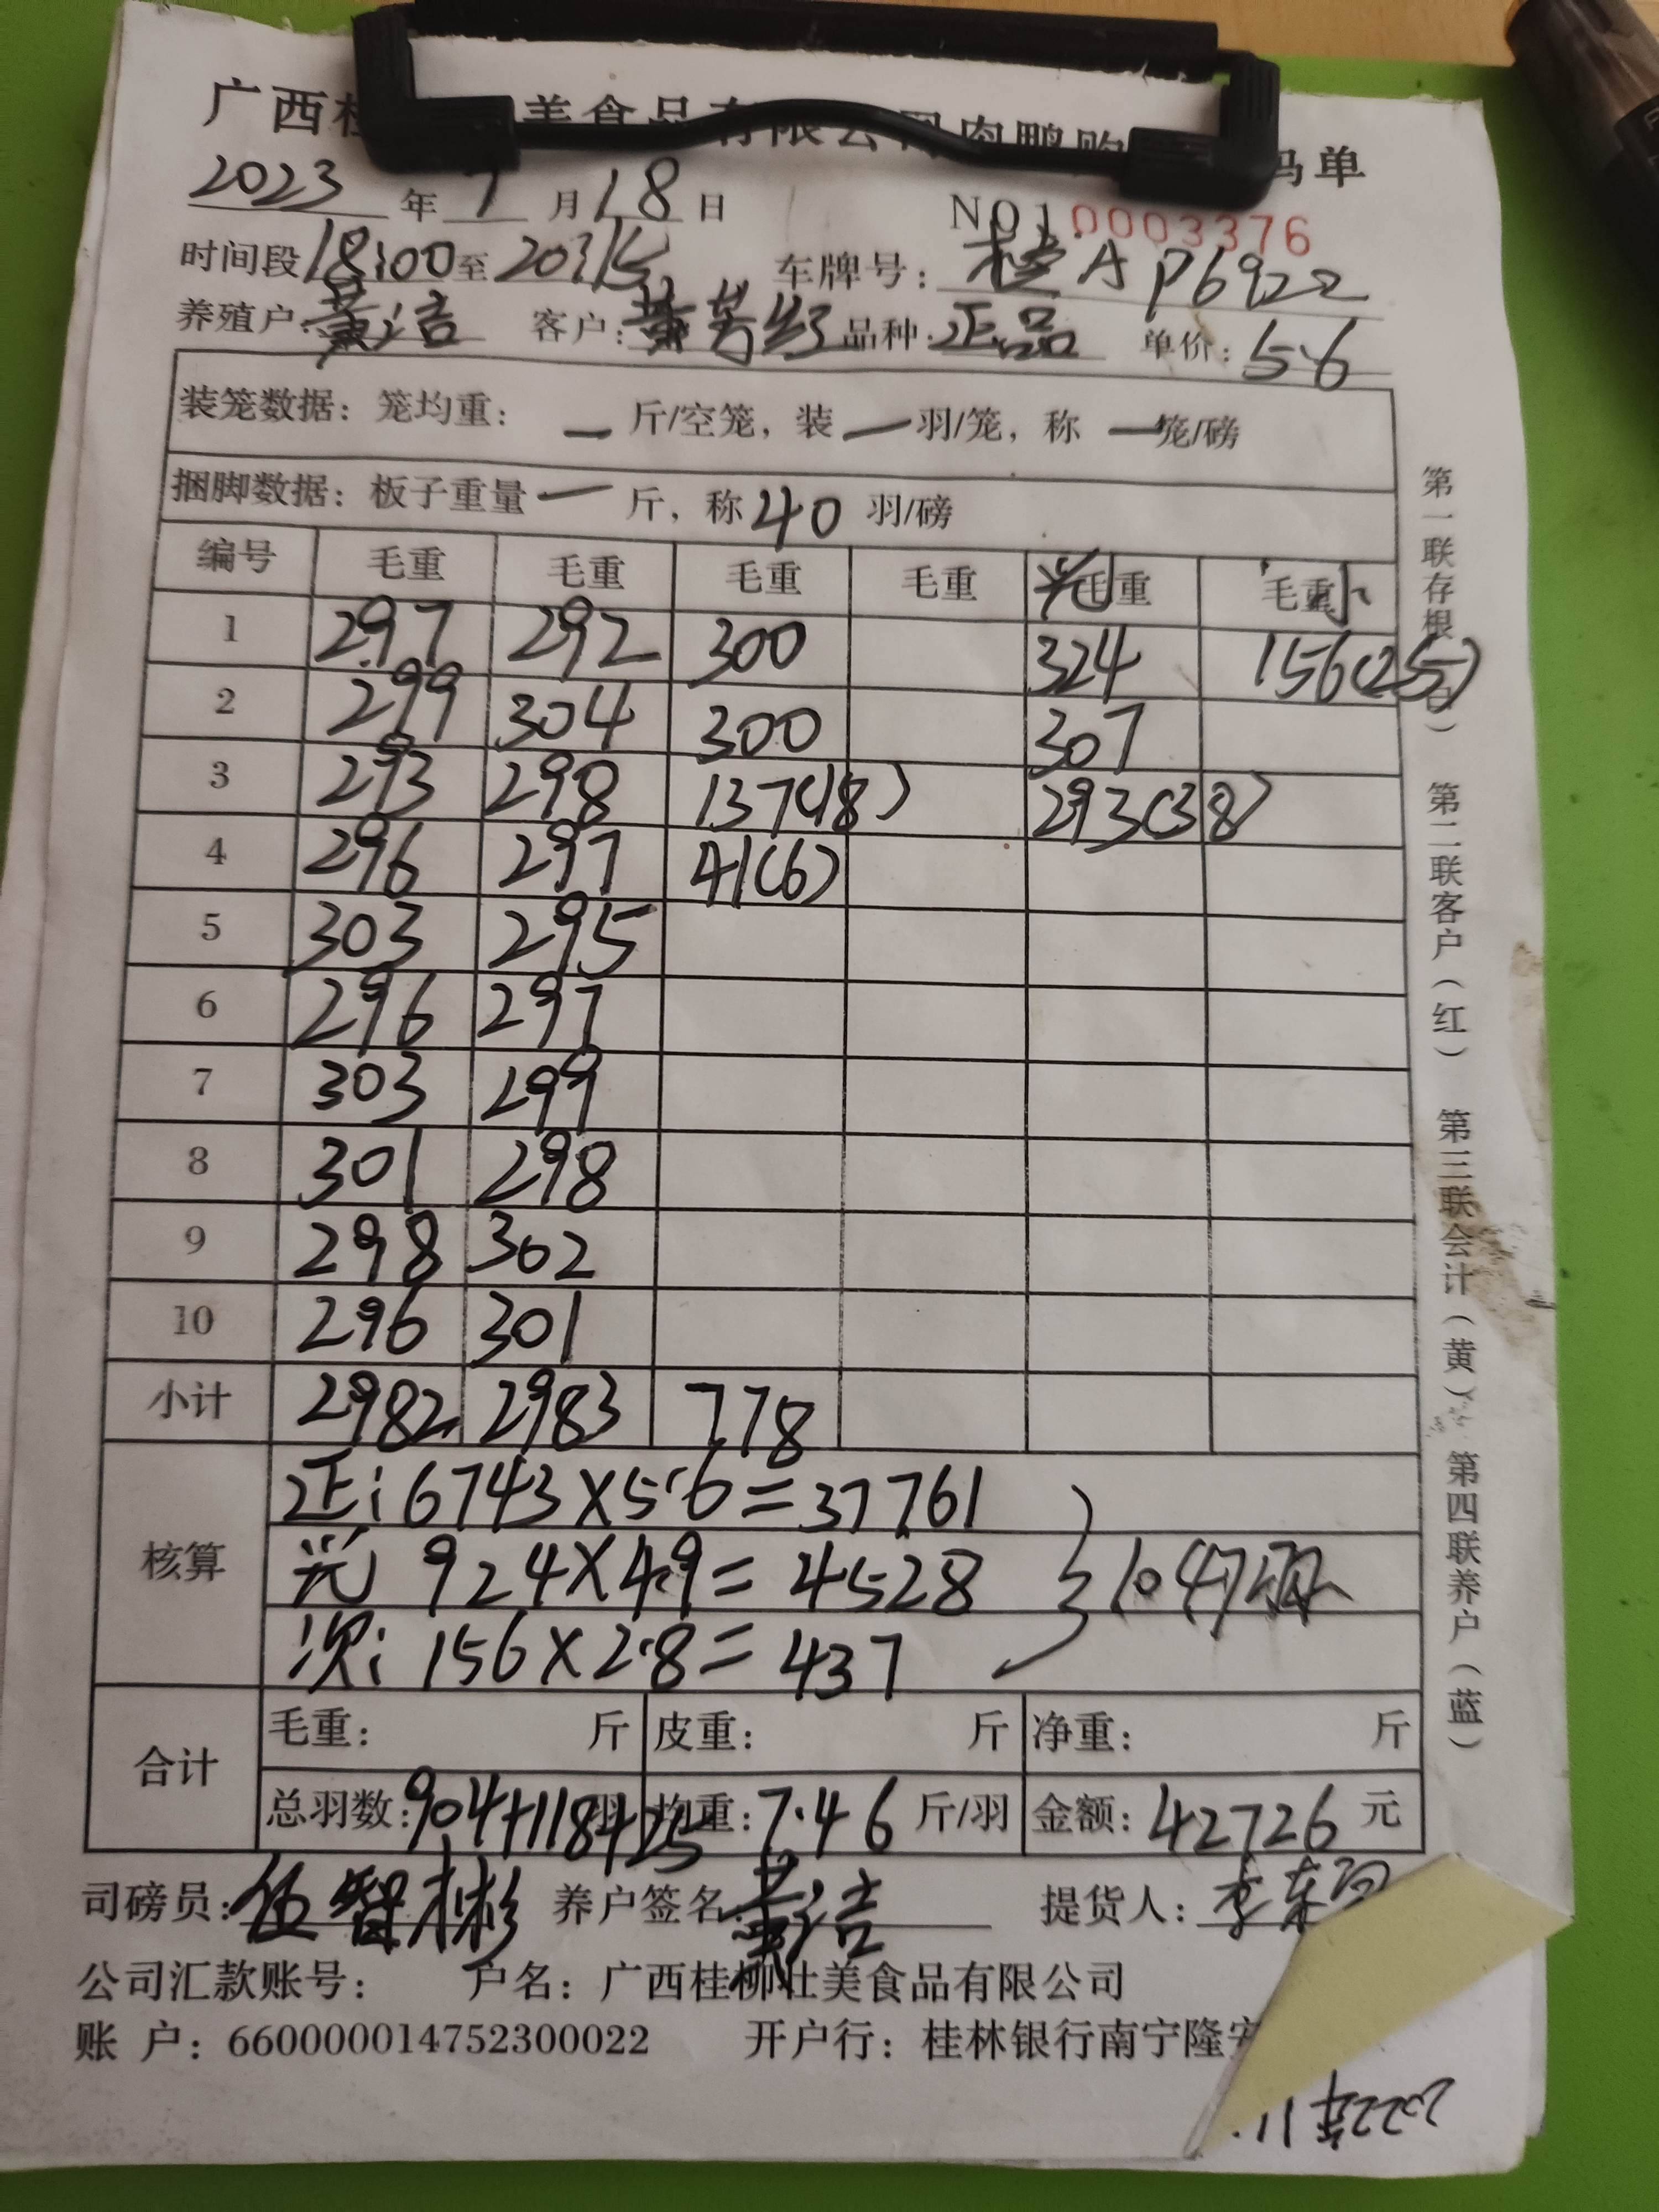 广西桂 美食品有限公司肉鸭购 码单
2023年7月18日 NO10003376
时间段18:00至20:15 车牌号:桂A P6922
养殖户:黄洁 客户: 品种:正品 单价:5.6
装笼数据:笼均重: — 斤/空笼,装 — 羽/笼,称 — 笼/磅
捆脚数据:板子重量 — 斤,称 40 羽/磅
编号 毛重 毛重 毛重 毛重 光毛重 毛重小
1 297 292 300 324 156(25)
2 299 304 300 307
3 293 298 137(18) 293(38)
4 296 297 41(6)
5 303 295
6 296 297
7 303 299
8 301 298
9 298 302
10 296 301
小计 2982 2983 778
核算
正:6743×5.6=37761
光 924×4.9=4528 1047羽
次:156×2.8=437
合计
毛重: 斤 皮重: 斤 净重: 斤
总羽数:904+118+25羽 均重:7.46斤/羽 金额:42726元
司磅员:伍智彬 养户签名:黄洁 提货人:李
公司汇款账号: 户名:广西桂柳壮美食品有限公司
账 户:660000014752300022 开户行:桂林银行南宁隆安
2022年11.
第一联存根(白) 第二联客户(红) 第三联会计(黄) 第四联养户(蓝)